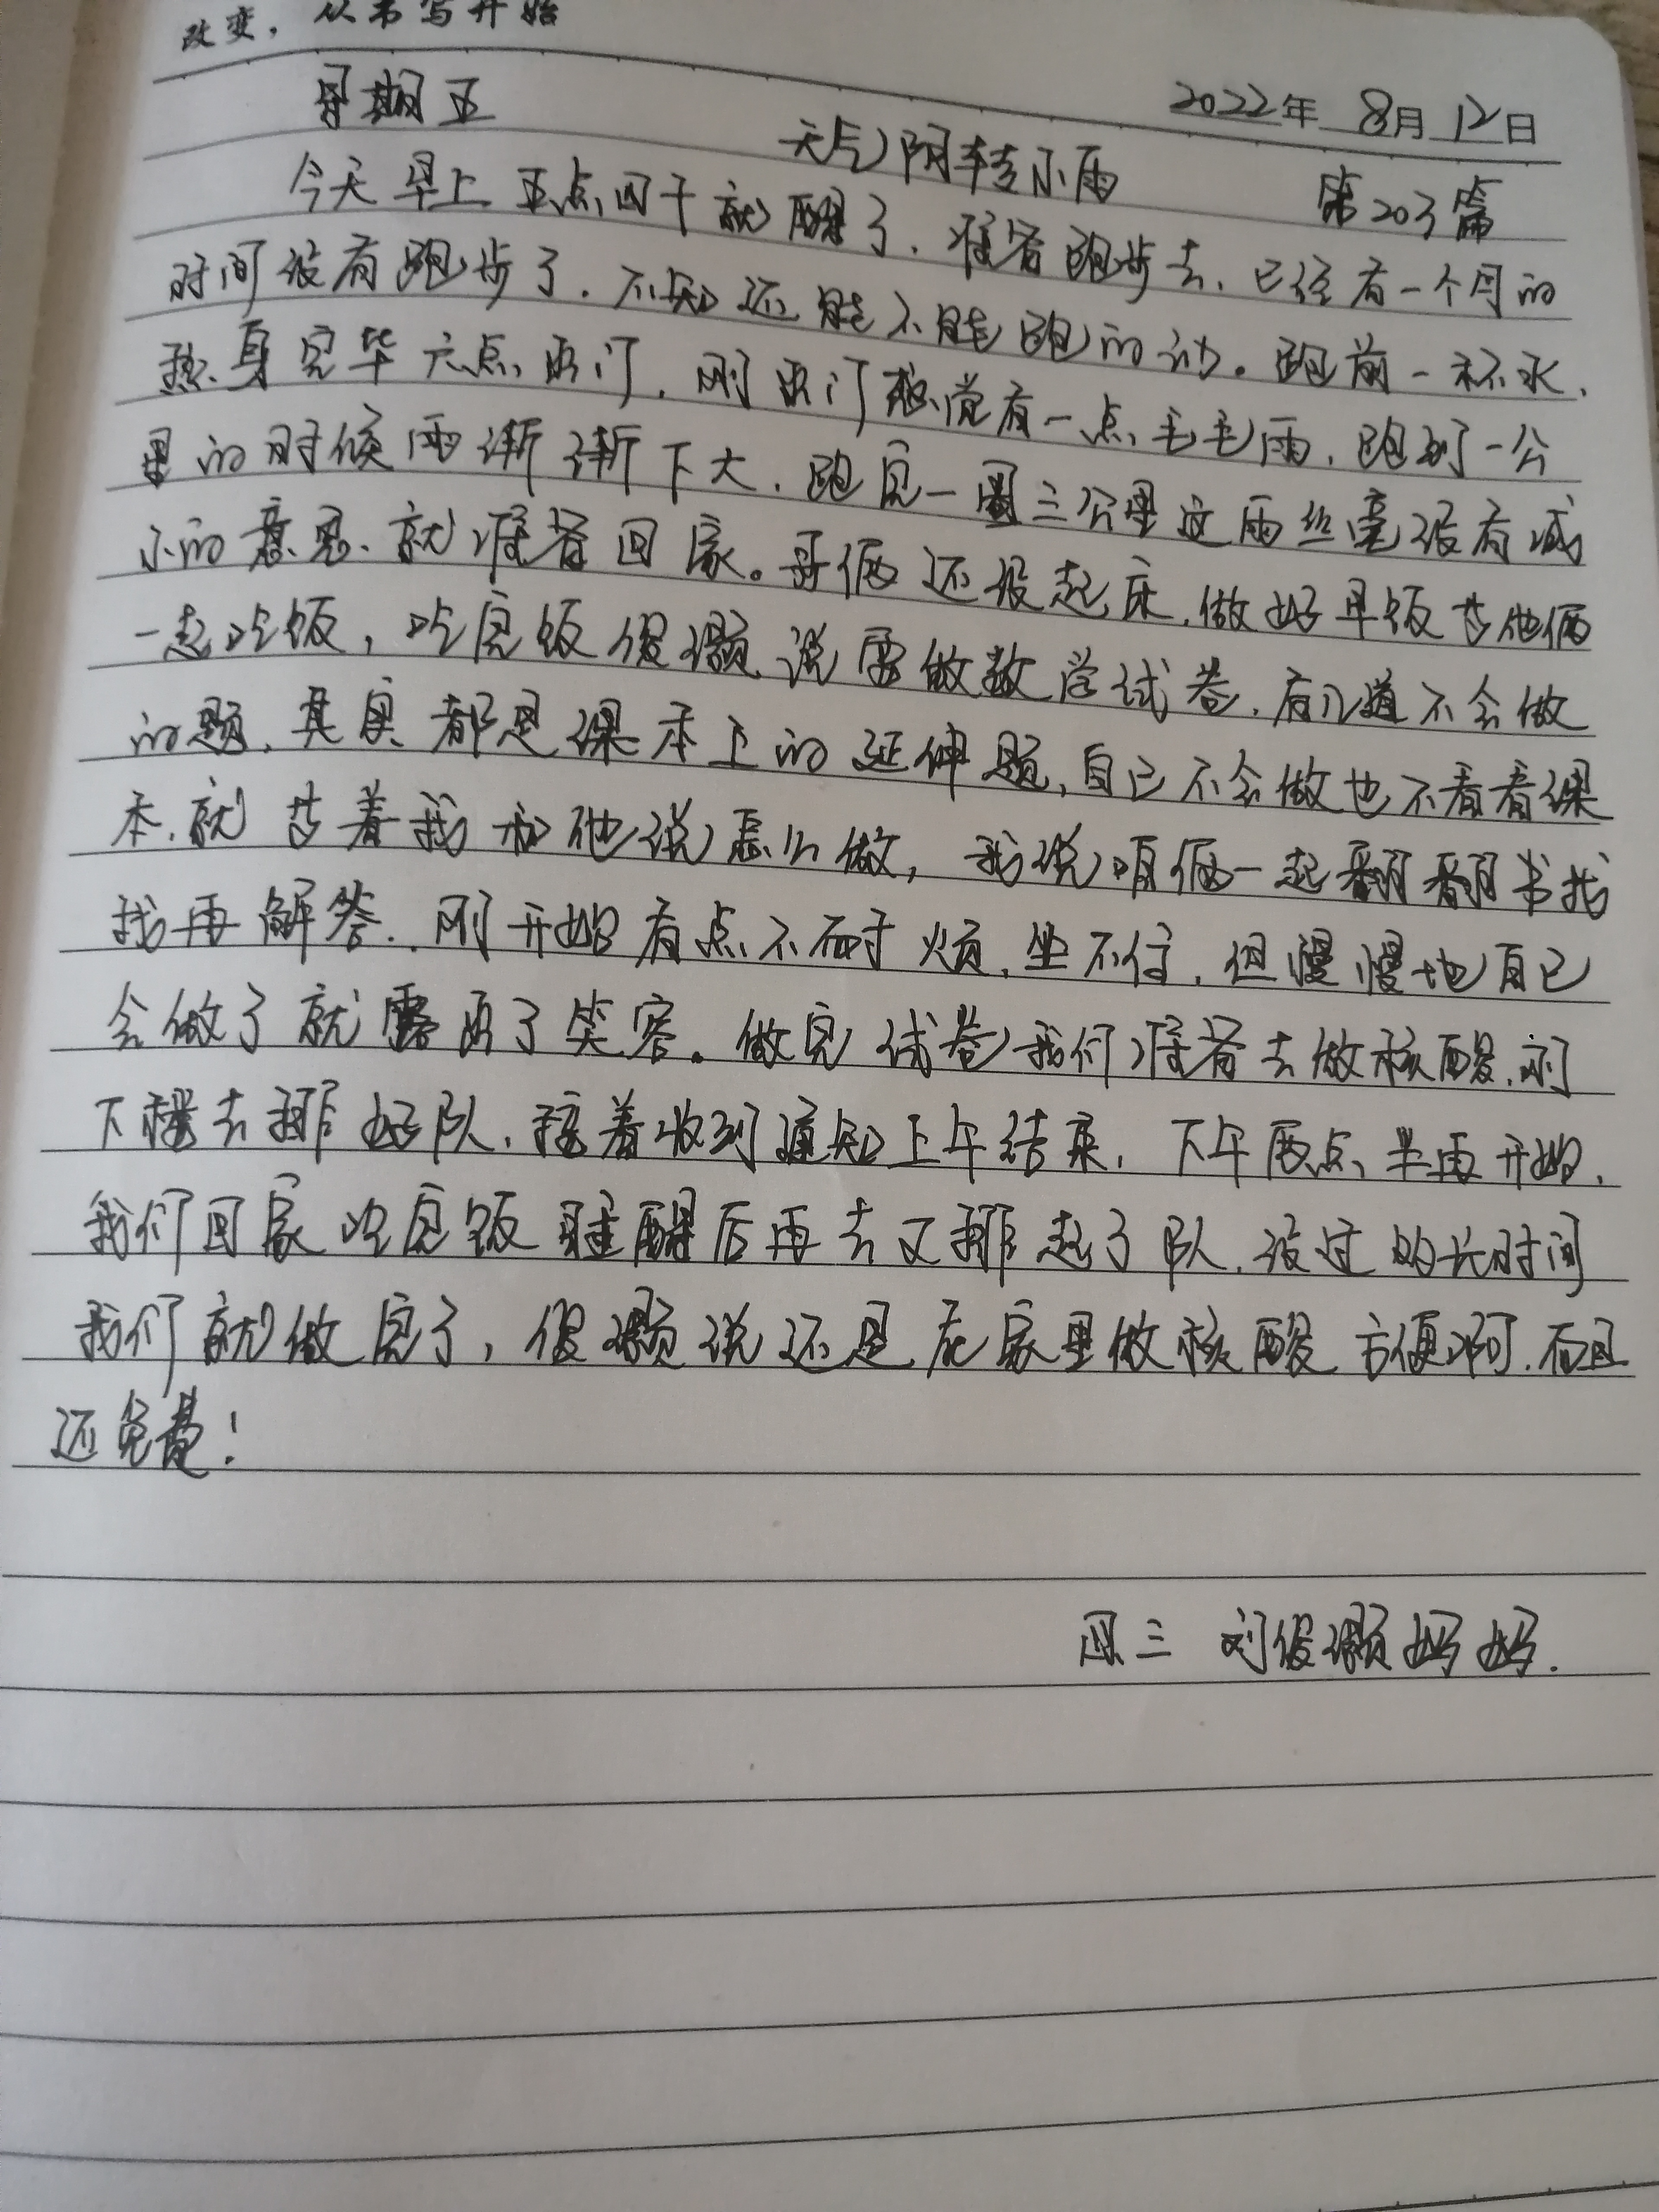 改变，从书写开始
2022年 8月 12日
星期五 天气阴转小雨 第203篇
今天早上五点四十就醒了，准备跑步去，已经有一个月的
时间没有跑步了，不知还能不能跑的动。跑前一杯水，
热身完毕六点出门，刚出门感觉有一点毛毛雨，跑到一公
里的时候雨渐渐下大，跑完一圈三公里这雨丝毫没有减
小的意思，就准备回家。哥俩还没起床，做好早饭带他俩
一起吃饭，吃完饭俊灏说要做数学试卷，有几道不会做
的题，其实都是课本上的延伸题，自己不会做也不看看课
本，就等着我和他说怎么做，我说咱俩一起翻翻书找
找再解答，刚开始有点不耐烦，坐不住，但慢慢地自己
会做了就露出了笑容。做完试卷我们准备去做核酸，刚
下楼去排好队，接着收到通知上午结束，下午两点半再开始，
我们回家吃完饭睡醒后再去又排起了队，没过多长时间
我们就做完了，俊灏说还是在家里做核酸方便啊，而且
还免费！
四三 刘俊灏妈妈.